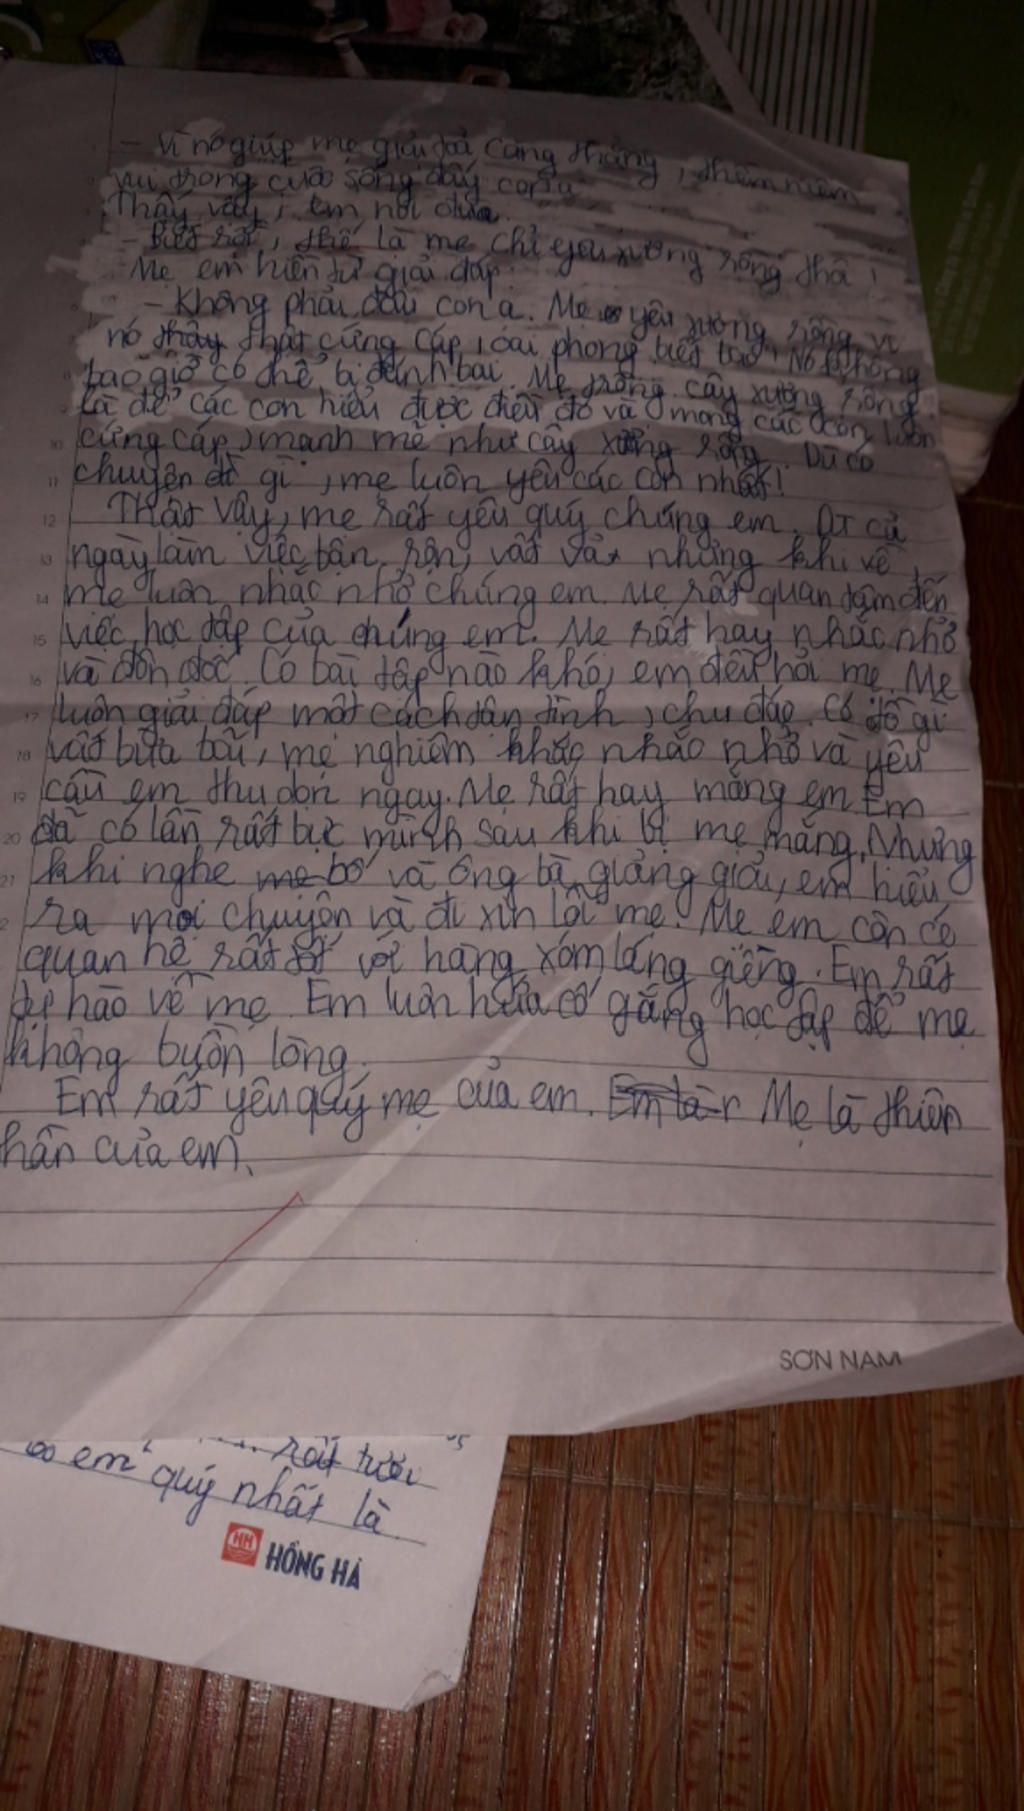 - Vì nó giúp mẹ giải toả căng thẳng, thêm niềm
vui trong cuộc sống đấy con ạ
Thấy vậy, em nói đùa.
- Biết rồi, thế là mẹ chỉ yêu xương rồng thôi!
Mẹ em hiền từ giải đáp:
- Không phải đâu con ạ. Mẹ yêu xương rồng vì
nó thấy thật cứng cáp, oai phong biết bao. Nó không
bao giờ có thể bị đánh bại. Mẹ trồng cây xương rồng
là để các con hiểu được điều đó và mong các con luôn
10 cứng cáp, mạnh mẽ như cây xương rồng. Dù có
11 chuyện gì, mẹ luôn yêu các con nhất!
12 Thật vậy, mẹ rất yêu quý chúng em. Đi cả
13 ngày làm việc bận rộn, vất vả nhưng khi về,
14 mẹ luôn nhắc nhở chúng em. Mẹ rất quan tâm đến
15 việc học tập của chúng em. Mẹ rất hay nhắc nhở
16 và đôn đốc. Có bài tập nào khó, em đều hỏi mẹ. Mẹ
17 luôn giải đáp một cách tận tình, chu đáo. Có đồ gì
18 vất bừa bãi, mẹ nghiêm khắc nhắc nhở và yêu
19 cầu em thu dọn ngay. Mẹ rất hay mắng em. Em
20 đã có lần rất bực mình sau khi bị mẹ mắng. Nhưng
21 khi nghe mẹ bố và ông bà giảng giải, em hiểu
2 ra mọi chuyện và đi xin lỗi mẹ. Mẹ em còn có
quan hệ rất tốt với hàng xóm láng giềng. Em rất
tự hào về mẹ. Em luôn hứa cố gắng học tập để mẹ
không buồn lòng.
Em rất yêu quý mẹ của em. Em là Mẹ là thiên
hần của em.
SƠN NAM
rất tươi
em quý nhất là
HH HỒNG HÀ